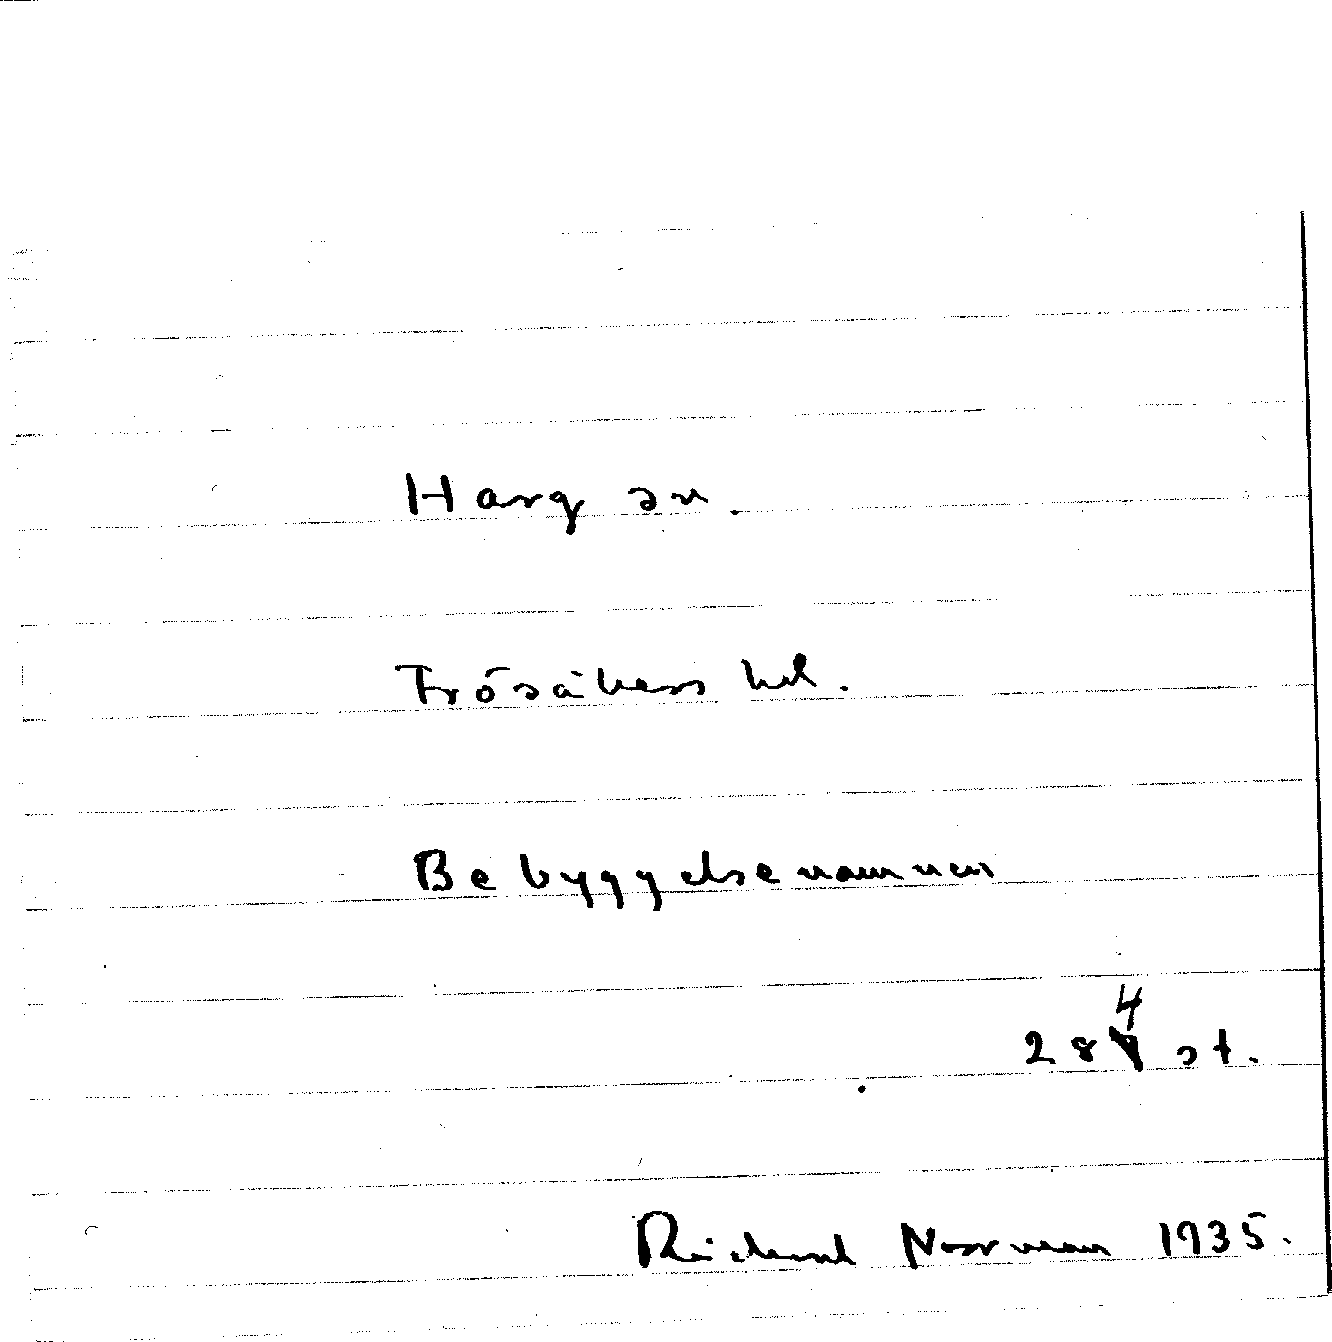 Harg sn.
Frösåkers hd.
Bebyggelsenamnen
4
28 st.
Richard Norrman 1935.